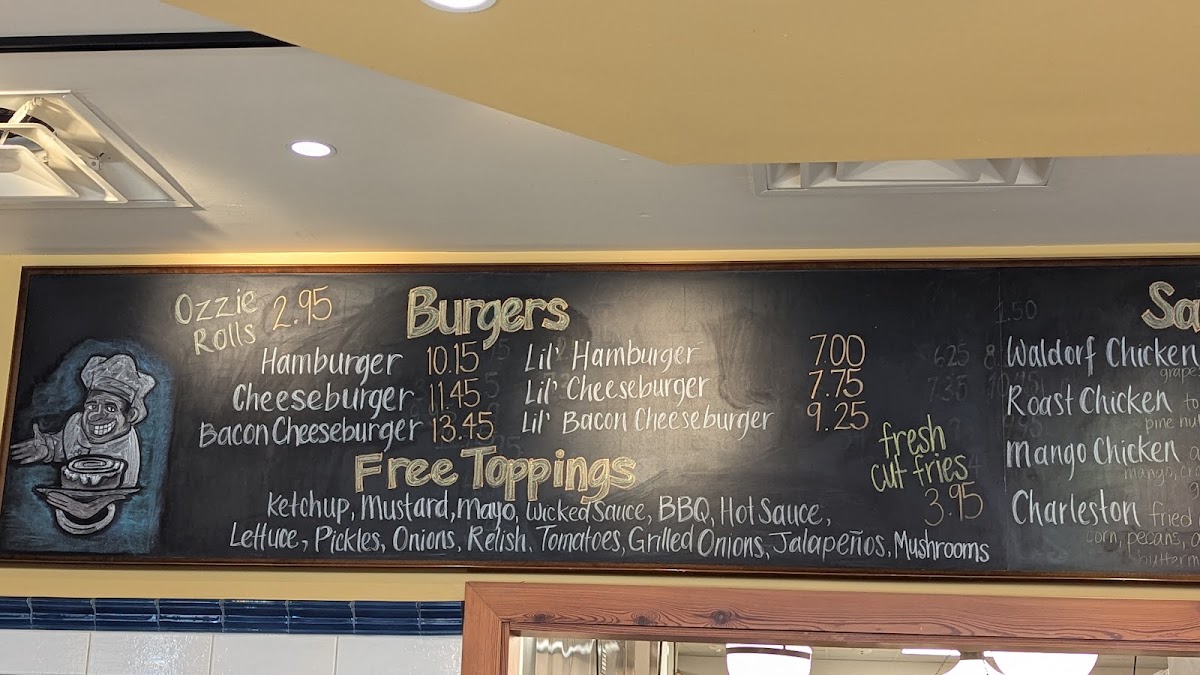 Ozzie
Rolls 2.95
Burgers
Hamburger 10.15
Cheeseburger 11.45
Bacon Cheeseburger 13.45
Lil' Hamburger 7.00
Lil' Cheeseburger 7.75
Lil' Bacon Cheeseburger 9.25
Free Toppings
Ketchup, Mustard, Mayo, Wicked Sauce, BBQ, Hot Sauce,
Lettuce, Pickles, Onions, Relish, Tomatoes, Grilled Onions, Jalapeños, Mushrooms
fresh
cut fries
3.95
Sa
Waldorf Chicken
grapes
Roast Chicken to
pine nut
Mango Chicken
mango, c
Charleston fried
corn, pecans, a
butterm